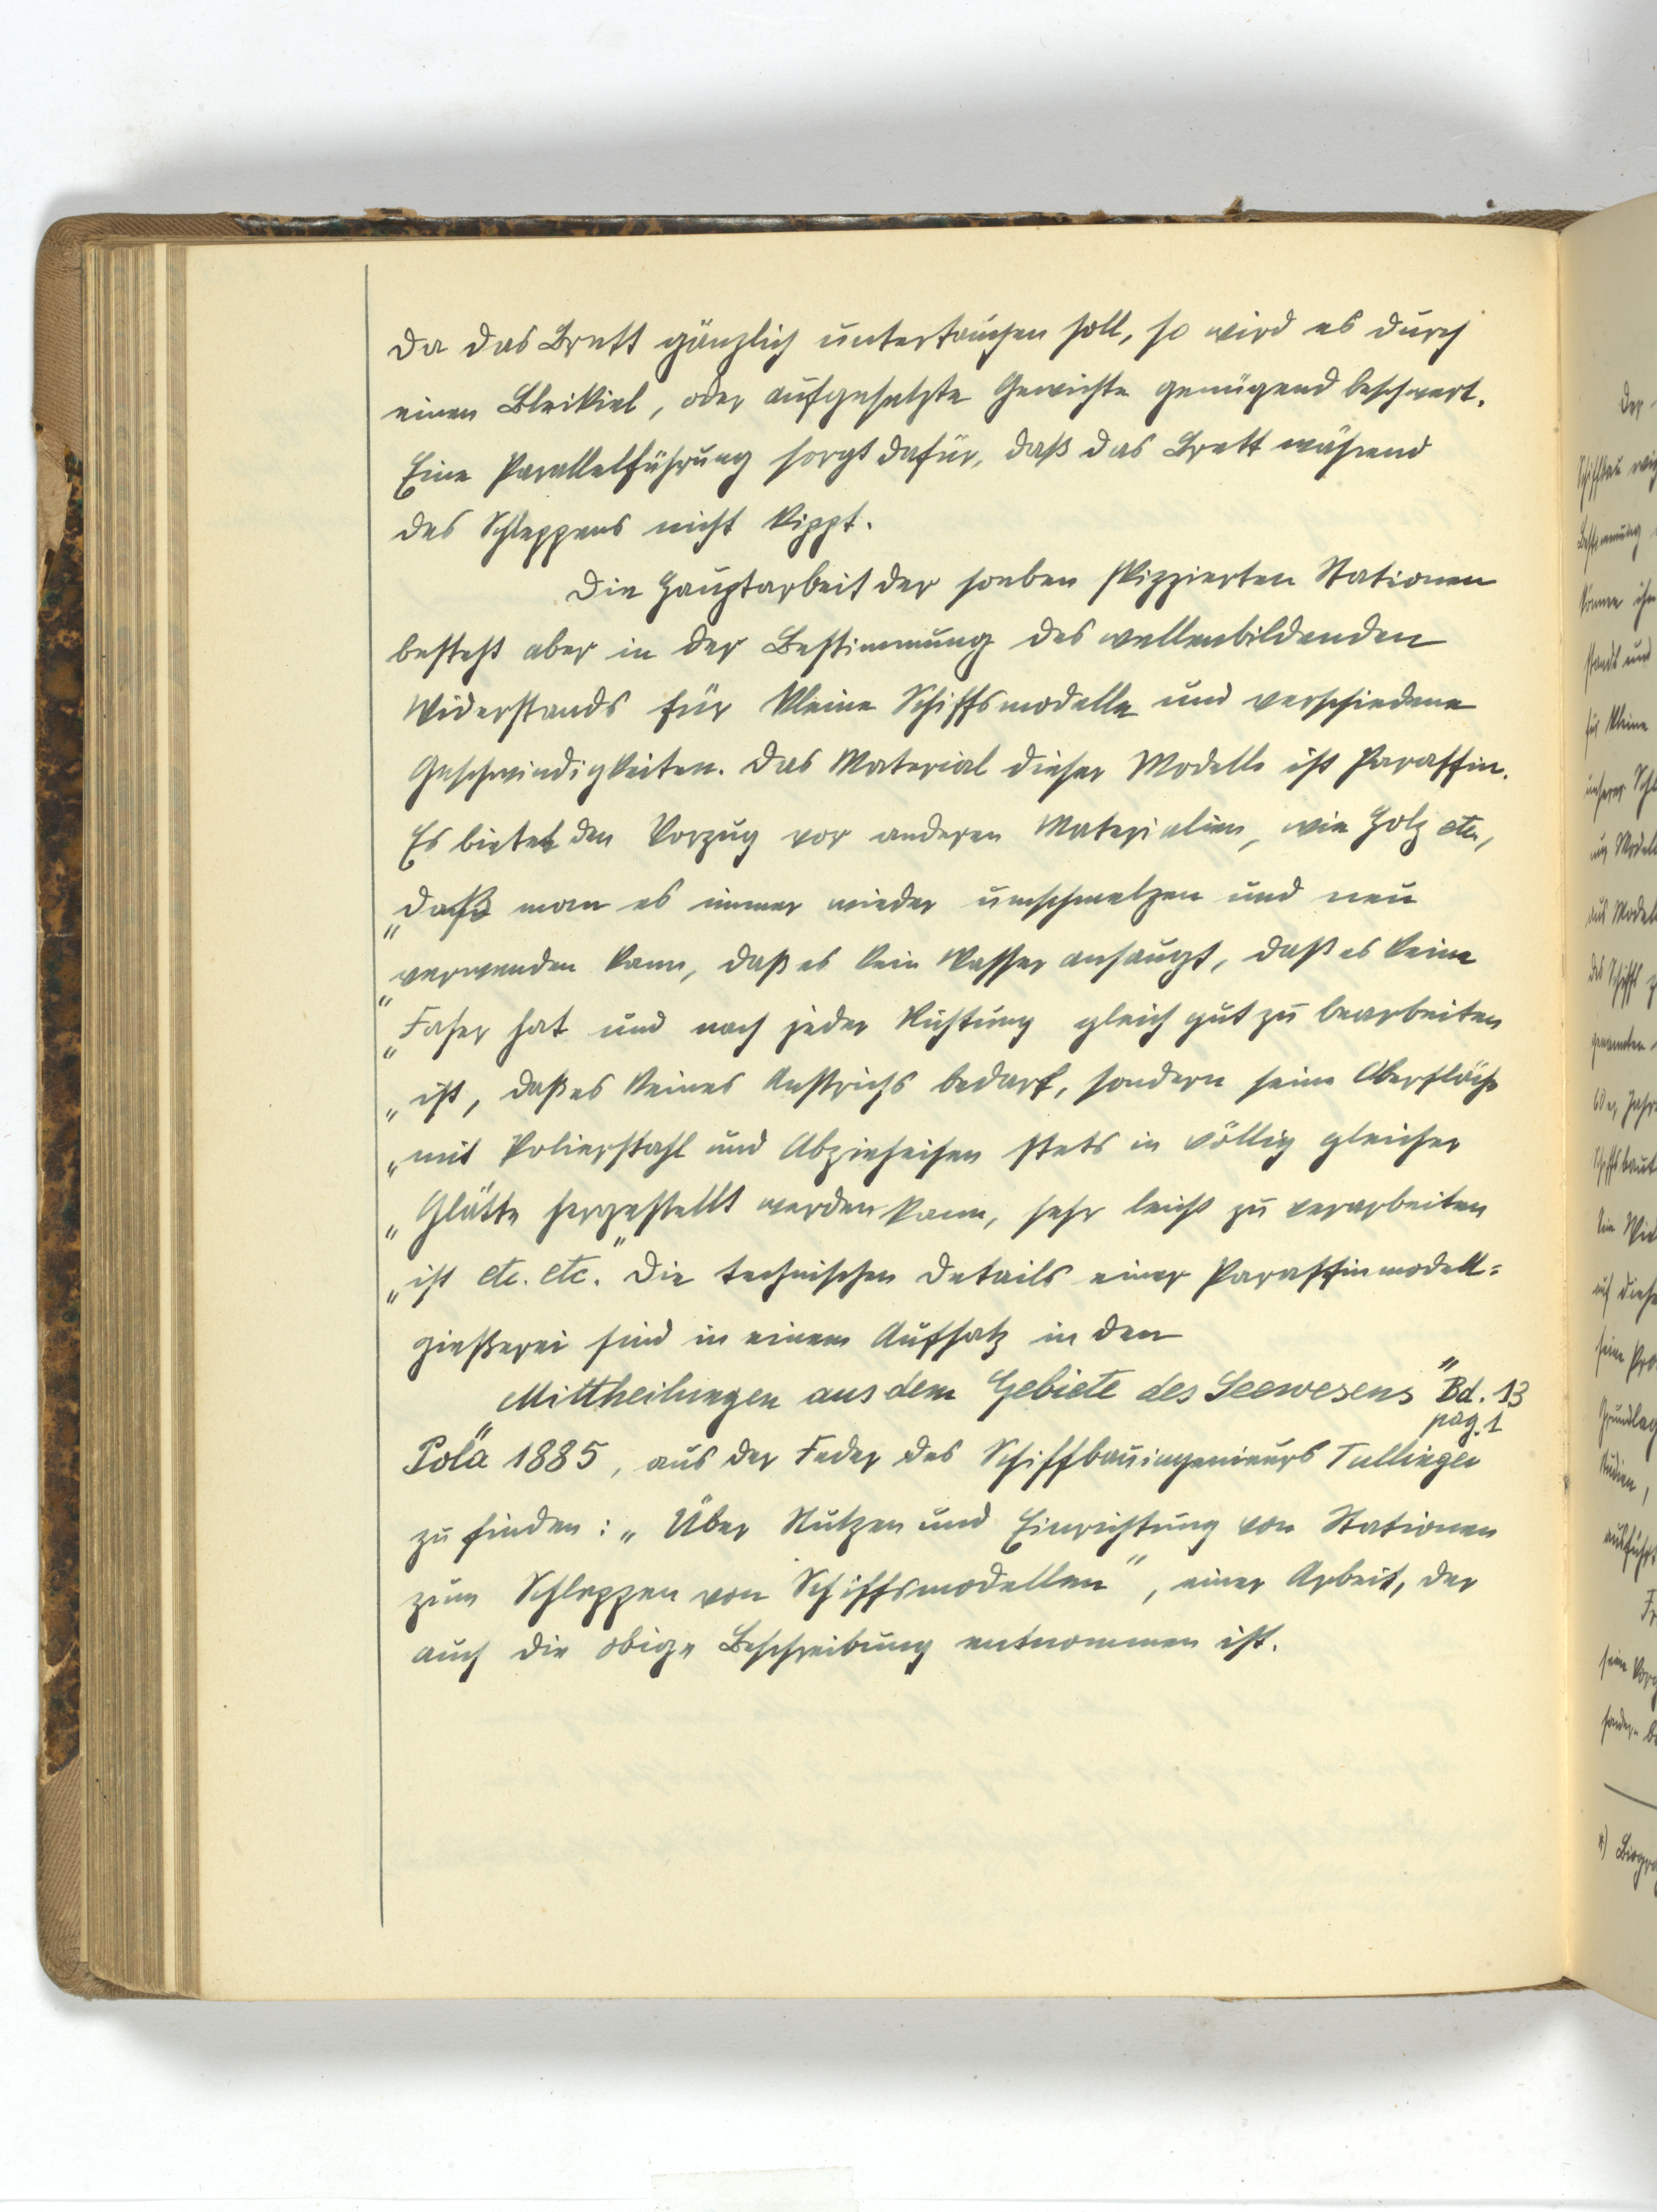 Da das Brett gänzlich untertauchen soll, so wird es durch
einen Bleikiel, oder aufgesetzte Gewichte genügend beschwert.
Eine Parallelführung sorgt dafür, daß das Brett während
des Schleppens nicht kippt.
Die Hauptarbeit der soeben skizzierten Stationen
besteht aber in der Bestimmung des wellenbildenden
Widerstands für kleine Schiffsmodelle und verschiedene
Geschwindigkeiten. Das Material dieser Modelle ist Paraffin.
Es bietet den Vorzug vor anderen Materialien, wie Holz etc.,
„daß man es immer wieder umschmelzen und neu
„verwenden kann, daß es kein Wasser ansaugt, daß es keine
„Faser hat und nach jeder Richtung gleich gut zu bearbeiten
„ist, daß es keines Anstrichs bedarf, sondern seine Oberfläche
„mit Polierstahl und Abzieheisen stets in völlig gleicher
„Glätte hergestellt werden kann, sehr leicht zu verarbeiten
„ist etc. etc." Die technischen Details einer Paraffinmodell=
gießerei sind in einem Aufsatz in den
„Mittheilungen aus dem Gebiete des Seewesens" Bd. 13
pag. 1
Pola 1885, aus der Feder des Schiffbauingenieurs Tullinger
zu finden: „Über Nutzen und Einrichtung von Stationen
zum Schleppen von Schiffsmodellen", einer Arbeit, der
auch die obige Beschreibung entnommen ist.